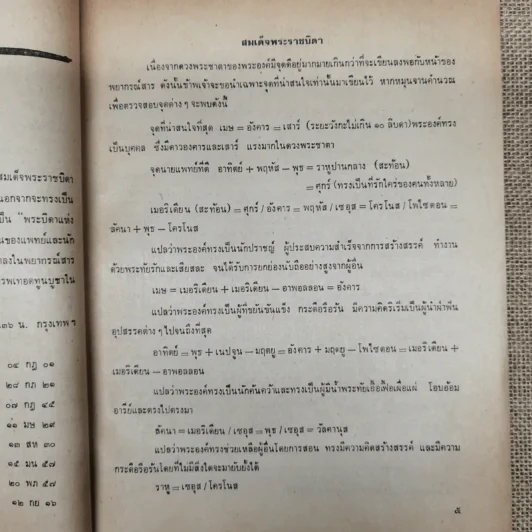 สมเด็จพระราชบิดา
นอกจากจะทรงเป็น
ป็น "พระบิดาแห่ง
นของแพทย์และนัก
ลงในพยากรณ์สาร
รพเทอดทูนบูชาใน
๓๖ น. กรุงเทพฯ
๐๔ กฎ ๐๑
๒๘ กภ ๒๑
๐๗ กฎ ๔๕
๑๑ มษ ๒๙
๑๓ สห ๓๐
๑๕ มน ๕๗
๒๐ พภ ๕๗
๑๒ กย ๑๖
สมเด็จพระราชบิดา
เนื่องจากดวงพระชาตาของพระองค์มีจุดดีอยู่มากมายเกินกว่าที่จะเขียนลงพอกับหน้าของ
พยากรณ์สาร ดังนั้นข้าพเจ้าจะขอนำเฉพาะจุดที่น่าสนใจเท่านั้นมาเขียนไว้ หากหมุนจานคำนวณ
เพื่อตรวจสอบจุดต่าง ๆ จะพบดังนี้
จุดที่น่าสนใจที่สุด เมษ = อังคาร = เสาร์ (ระยะวังกะไม่เกิน ๑๐ ลิบดา) พระองค์ทรง
เป็นบุคคล ซึ่งมีดาวอังคารและเสาร์ แรงมากในดวงพระชาตา
จุดนายแพทย์ที่ดี อาทิตย์ + พฤหัส − พุธ = ราหูปานกลาง (สะท้อน)
= ศุกร์ (ทรงเป็นที่รักใคร่ของคนทั้งหลาย)
เมอริเดียน (สะท้อน) = ศุกร์ / อังคาร = พฤหัส / เซอุส = โครโนส / โพไซดอน =
ลัคนา + พุธ − โครโนส
แปลว่าพระองค์ทรงเป็นนักปราชญ์ ผู้ประสบความสำเร็จจากการสร้างสรรค์ ทำงาน
ด้วยพระทัยรักและเสียสละ จนได้รับการยกย่องนับถืออย่างสูงจากผู้อื่น
เมษ = เมอริเดียน + เมอริเดียน − อาพอลลอน = อังคาร
แปลว่าพระองค์ทรงเป็นผู้ที่ขยันขันแข็ง กระตือรือร้น มีความคิดริเริ่มเป็นผู้นำฝ่าฟัน
อุปสรรคต่าง ๆ ไปจนถึงที่สุด
อาทิตย์ = พุธ + เนปจูน − มฤตยู = อังคาร + มฤตยู − โพไซดอน = เมอริเดียน +
เมอริเดียน − อาพอลลอน
แปลว่าพระองค์ทรงเป็นนักค้นคว้าและทรงเป็นผู้มีน้ำพระทัยเอื้อเฟื้อเผื่อแผ่ โอบอ้อม
อารีย์และตรงไปตรงมา
ลัคนา = เมอริเดียน / เซอุส = พุธ / เซอุส = วัลคานุส
แปลว่าพระองค์ทรงช่วยเหลือผู้อื่นโดยการสอน ทรงมีความคิดสร้างสรรค์ และมีความ
กระตือรือร้นโดยที่ไม่มีสิ่งใดจะมายับยั้งได้
ราหู = เซอุส / โครโนส
๕